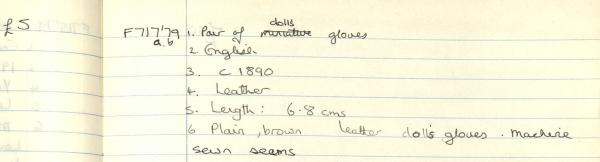 £5
F717'79 1. Pair of miniature dolls gloves
a,b
2. English.
3. c 1890
4. Leather
5. Length: 6.8 cms
6 Plain, brown leather dolls gloves. Machine
sewn seams